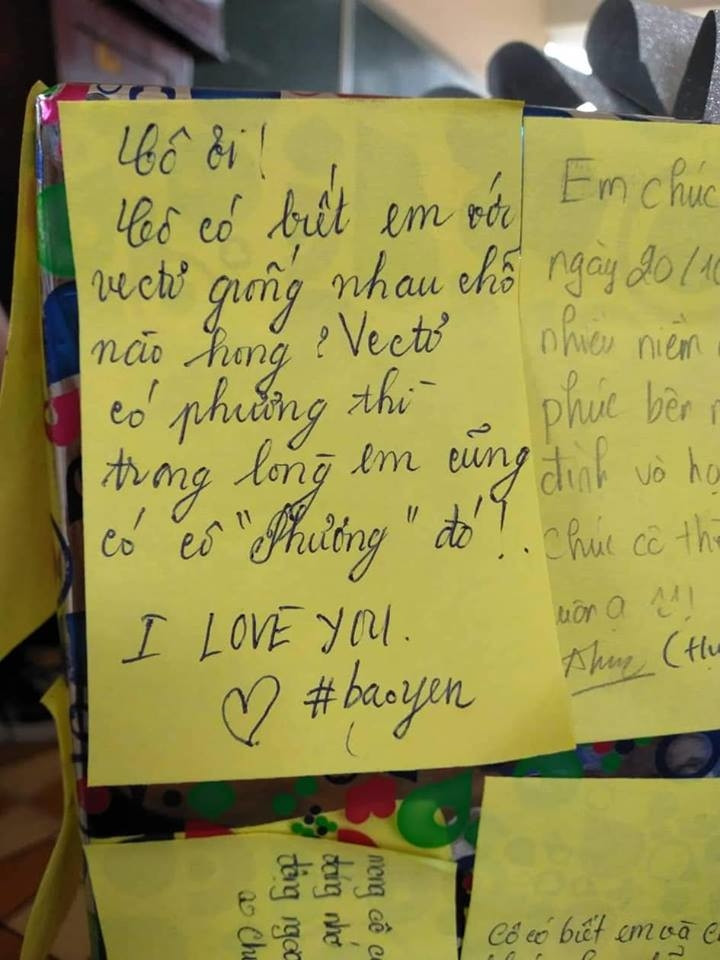 Cô ơi!
Cô có biết em với
vectơ giống nhau chỗ
nào hong? Vectơ
có phương thì
trong lòng em cũng
có cô "Phương" đó!.
I LOVE YOU.
♡ #baoyen
Em chúc
ngày 20/10
nhiều niềm
phúc bên
đình và
chúc cô
(Hu
mong cô
đừng nhớ
Cô có biết em và